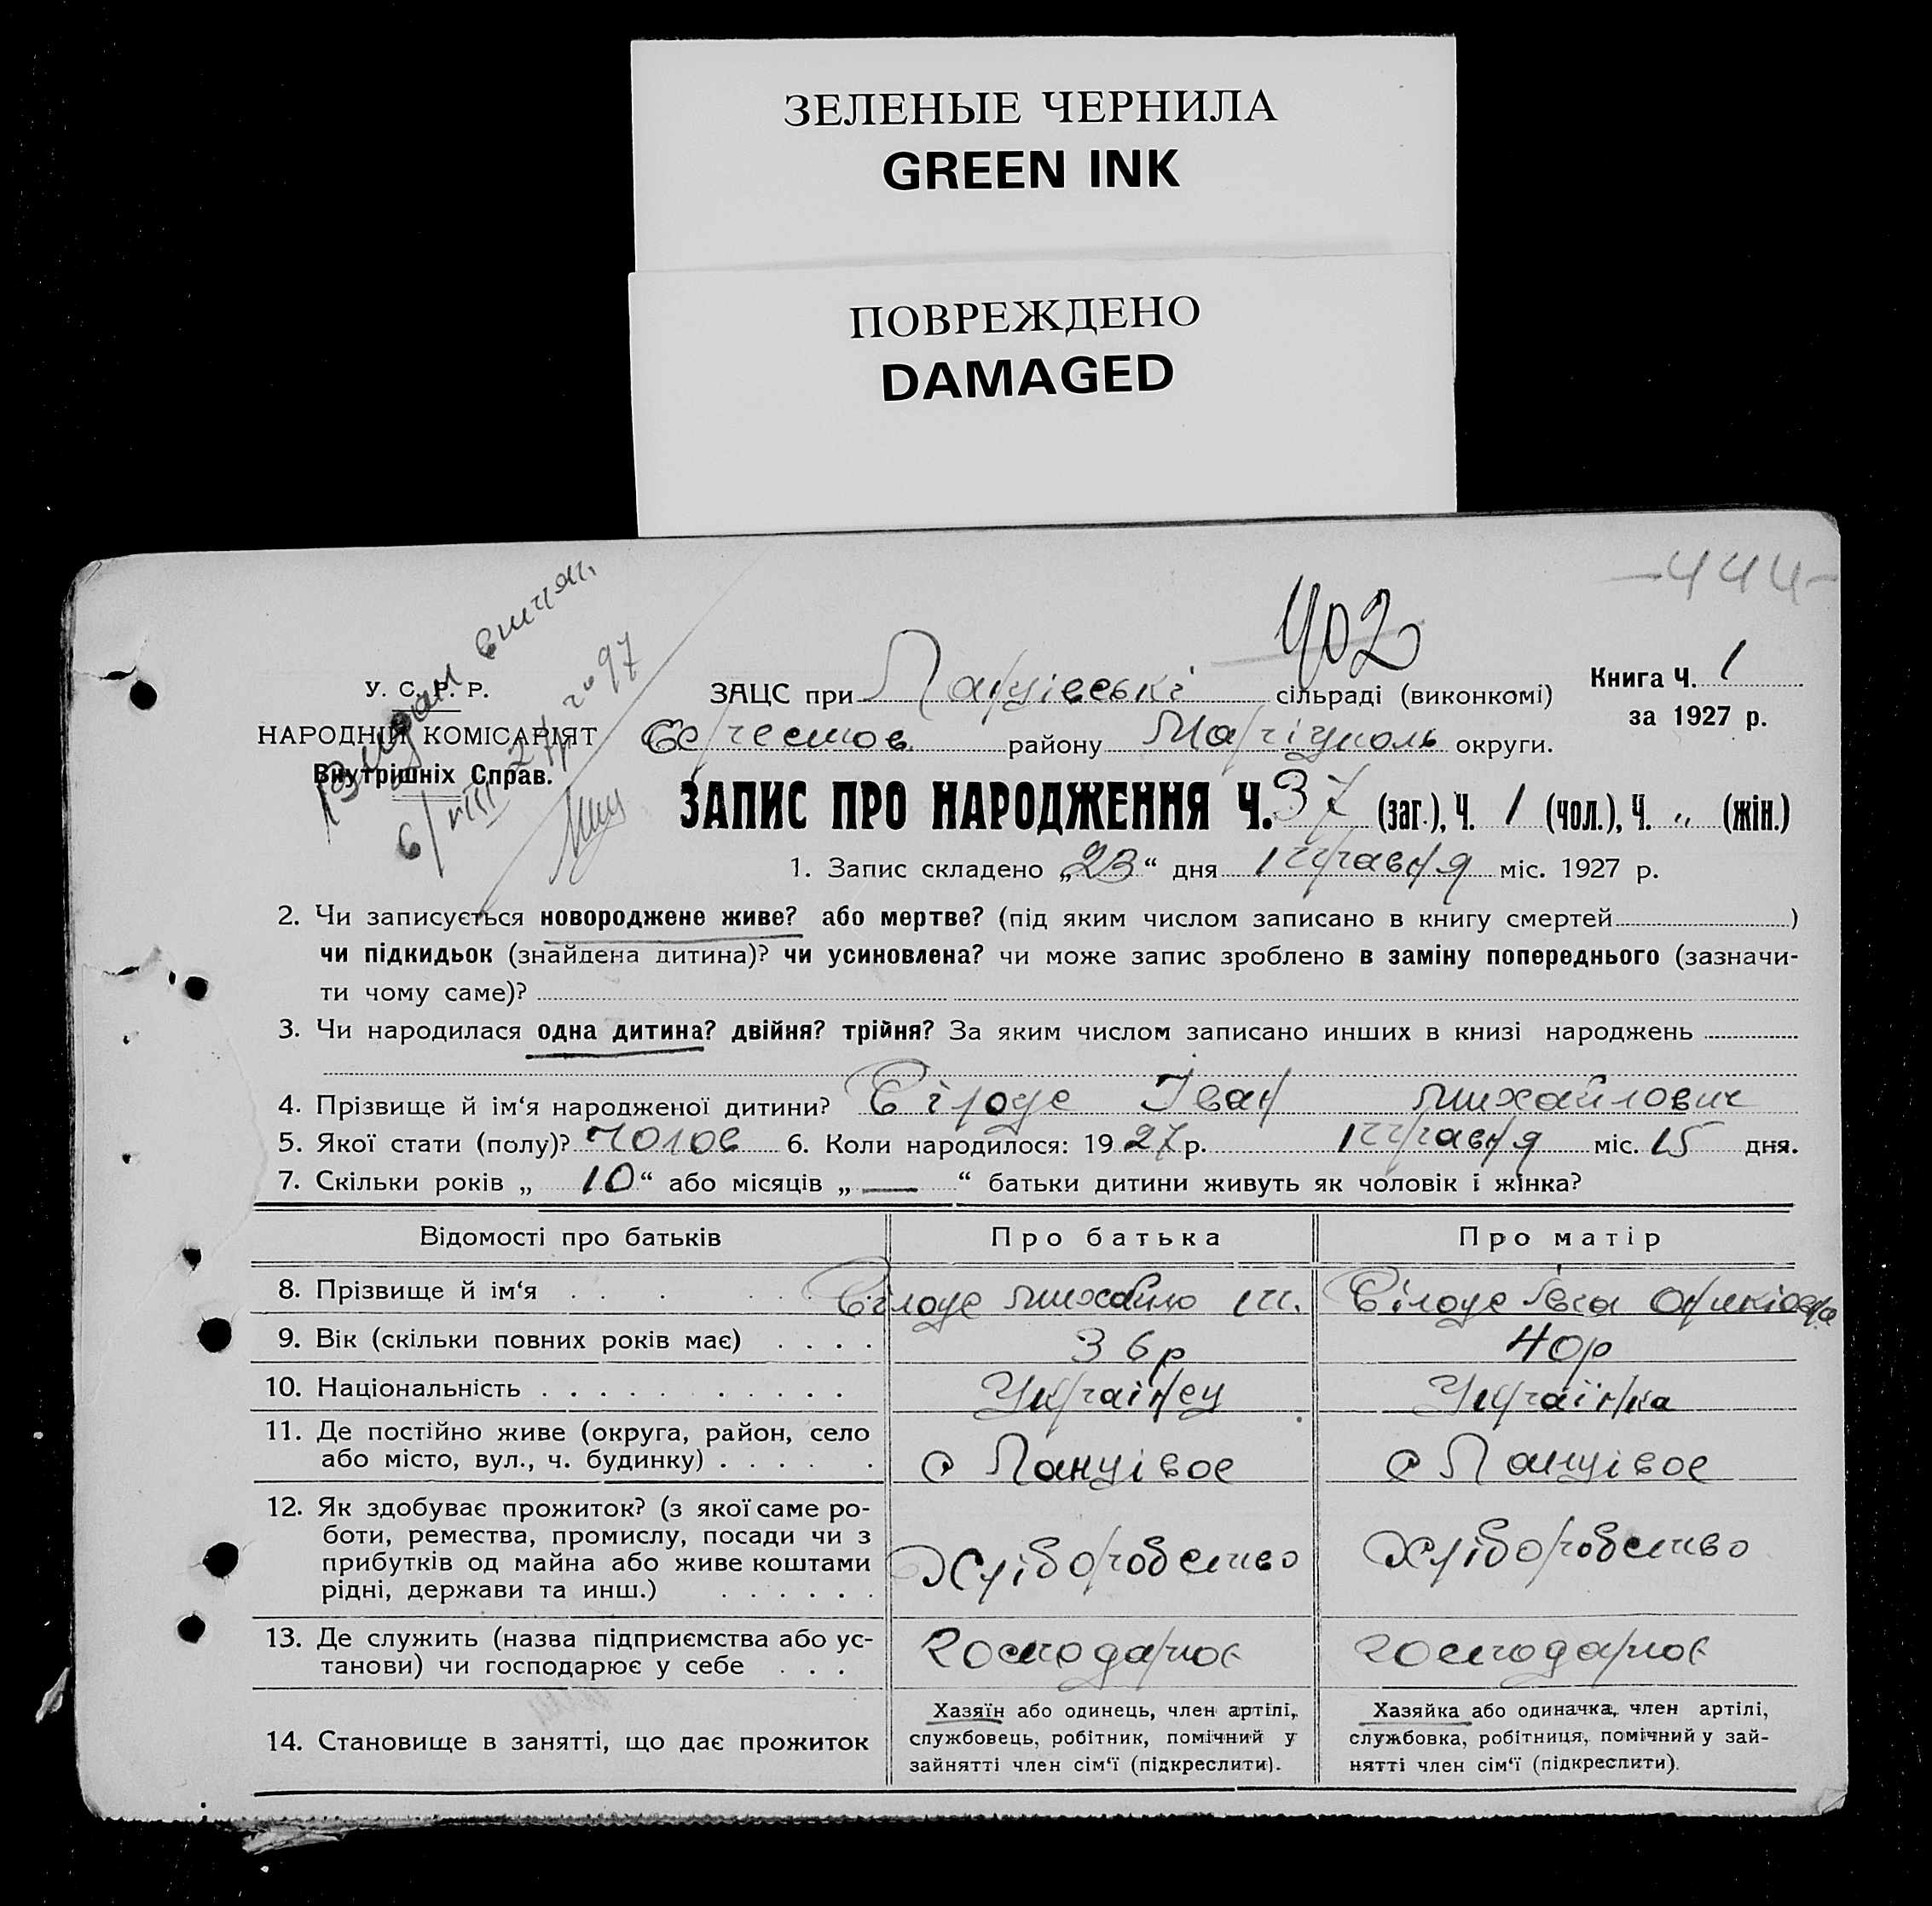 ЗЕЛЕНЫЕ ЧЕРНИЛА
GREEN INK
ПОВРЕЖДЕНО
DAMAGED
-444-
402
Видан витяг
6/VIII 27р
У. С. Р. Р.
НАРОДНІЙ КОМІСАРІЯТ
Внутрішніх Справ.
ЗАЦС при сільраді (виконкомі)
району Маріуполь округи.
Книга Ч. 1
за 1927 р.
ЗАПИС ПРО НАРОДЖЕННЯ Ч. 37 (заг.), Ч. 1 (чол.), Ч. „ (жін.)
1. Запис складено „23“ дня травня міс. 1927 р.
2. Чи записується новороджене живе? або мертве? (під яким числом записано в книгу смертей )
чи підкидьок (знайдена дитина)? чи усиновлена? чи може запис зроблено в заміну попереднього (зазначи-
ти чому саме)?
3. Чи народилася одна дитина? двійня? трійня? За яким числом записано инших в книзі народжень
4. Прізвище й ім‘я народженої дитини? Білоус Іван Михайлович
5. Якої стати (полу)? Чолов 6. Коли народилося: 1927 р. травня міс. 15 дня.
7. Скільки років „ 10 “ або місяців „ — “ батьки дитини живуть як чоловік і жінка?
Відомості про батьків Про батька Про матір
8. Прізвище й ім‘я . . . . . . Білоус Михайло Білоус
9. Вік (скільки повних років має) . . . . 36р 40р
10. Національність . . . . . . . . . . . Українец Українка
11. Де постійно живе (округа, район, село
або місто, вул., ч. будинку) . . . . . с Ланцівое с Ланцівое
12. Як здобуває прожиток? (з якої саме ро-
боти, ремества, промислу, посади чи з
прибутків од майна або живе коштами
рідні, держави та инш.) . . . . . . Хліборобство Хліборобство
13. Де служить (назва підприємства або ус-
танови) чи господарює у себе . . . господарює господарює
14. Становище в занятті, що дає прожиток
Хазяїн або одинець, член артілі,
службовець, робітник, помічний у
зайнятті член сім‘ї (підкреслити).
Хазяйка або одиначка, член артілі,
службовка, робітниця, помічний у зай-
нятті член сім‘ї (підкреслити).